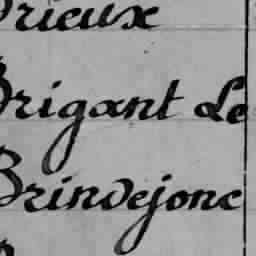 Brieux
Brigant Le
Brindejonc